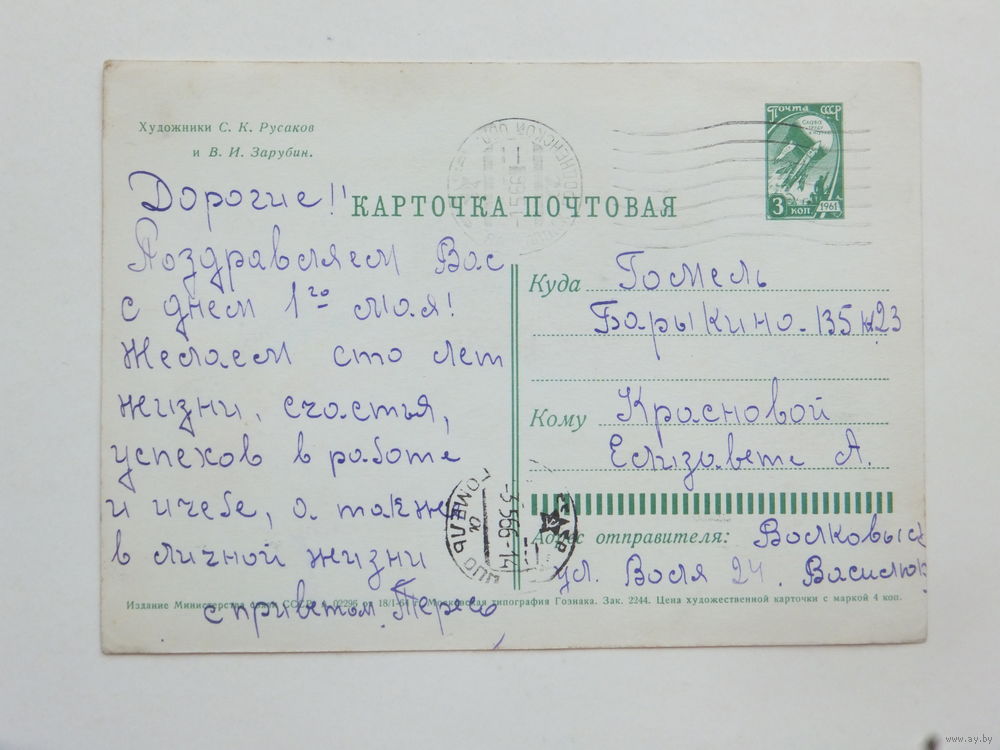 Художники С. К. Русаков
и В. И. Зарубин.
Почта СССР
3 коп 1961
КАРТОЧКА ПОЧТОВАЯ
Дорогие!!
Поздравляем Вас
с днем 1го мая!
Желаем сто лет
жизни, счастья,
успехов в работе
и учебе, а также
в личной жизни
с приветом
Куда Гомель
Барыкино-135 к 23
Кому Красновой
Елизавете А.
ГОМЕЛЬ
-3566-14
Адрес отправителя: Волковыск
ул. Воля 24. Василюк
Издание Министерства связи СССР. 18/1-6 Московская типография Гознака. Зак. 2244. Цена художественной карточки с маркой 4 коп.
www.ay.by